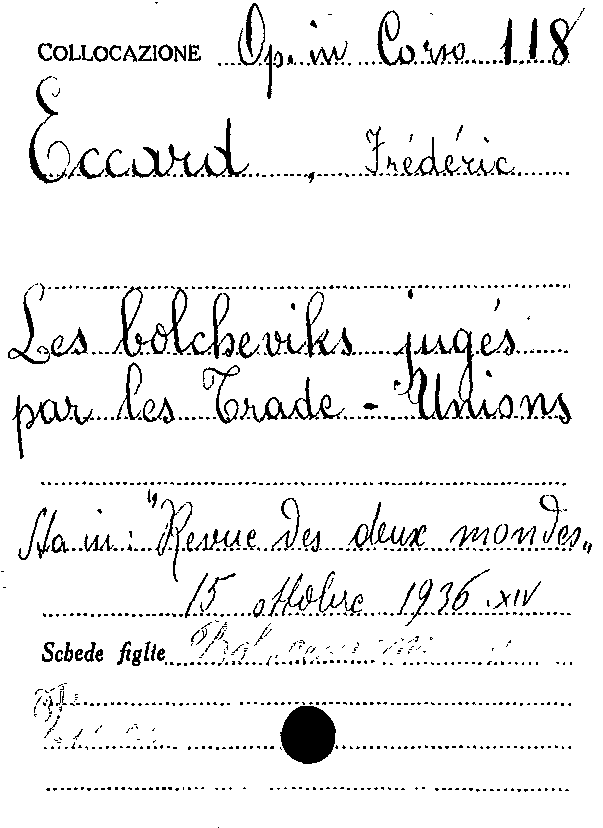 COLLOCAZIONE Op. in Corso 118
Eccard, Frédéric
Les bolcheviks jugés
par les Trade-Unions
Sta in: "Revue des deux mondes„
15 ottobre 1936.XIV
Schede figlie